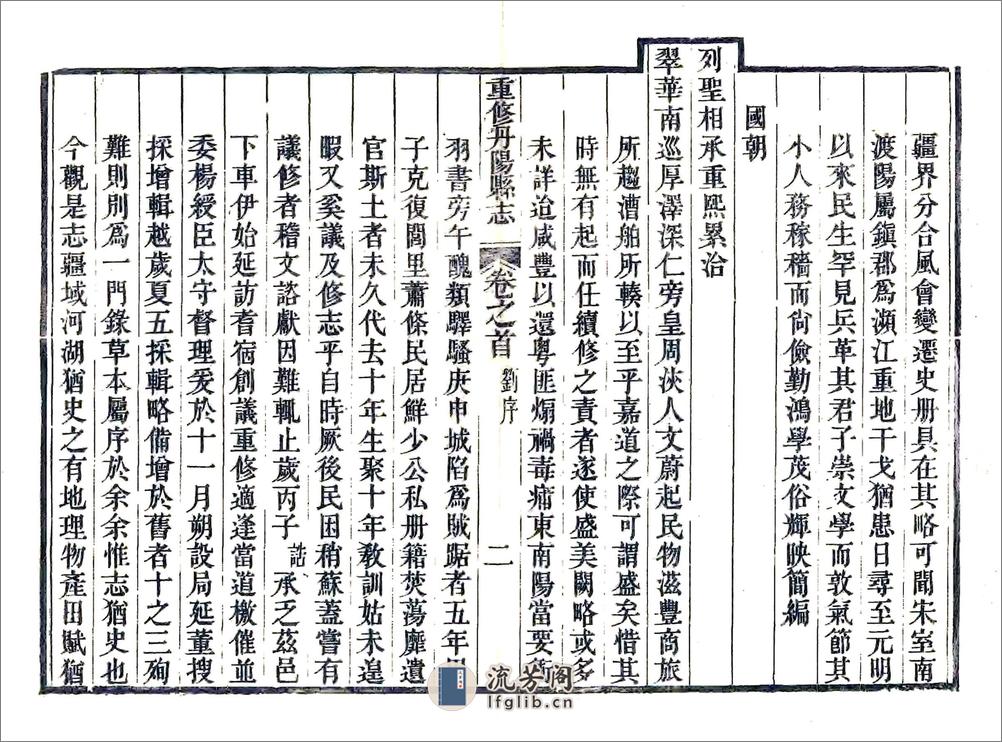 疆界分合風會變遷史册具在其略可聞宋室南
渡陽屬鎮郡為瀕江重地干戈猶患日尋至元明
以來民生罕見兵革其君子崇文學而敦氣節其
小人務稼穡而尚儉勤鴻學茂俗輝映簡編
國朝
列聖相承重熙累洽
翠華南巡厚澤深仁旁皇周浹人文蔚起民物滋豐商旅
所趨漕舶所轃以至乎嘉道之際可謂盛矣惜其
時無有起而任續修之責者遂使盛美闕略或多
未詳迨咸豐以還粵匪煽禍毒痡東南陽當要衝
重修丹陽縣志 卷之首 劉序 二
羽書旁午醜類驛騷庚申城陷為賊踞者五年甲
子克復閭里蕭條民居鮮少公私册籍焚蕩靡遺
官斯土者未久代去十年生聚十年教訓姑未遑
暇又奚議及修志乎自時厥後民困稍蘇蓋嘗有
議修者稽文諮獻因難輒止歲丙子誥承乏茲邑
下車伊始延訪耆宿創議重修適逢當道檄催並
委楊綬臣太守督理爰於十一月朔設局延董搜
採增輯越歲夏五採輯略備增於舊者十之三殉
難則別為一門錄草本屬序於余余惟志猶史也
今觀是志疆域河湖猶史之有地理物產田賦猶
流芳阁
lfglib.cn